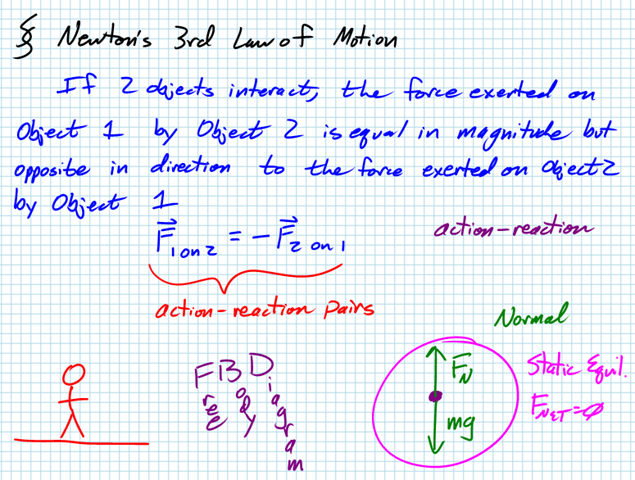 § Newton's 3rd Law of Motion
If 2 objects interact, the force exerted on
Object 1 by Object 2 is equal in magnitude but
opposite in direction to the force exerted on Object 2
by Object 1
F⃗1 on 2 = -F⃗2 on 1
action-reaction
action-reaction pairs
Normal
FBD
Free
Body
Diagram
FN
mg
Static Equil.
FNET = 0